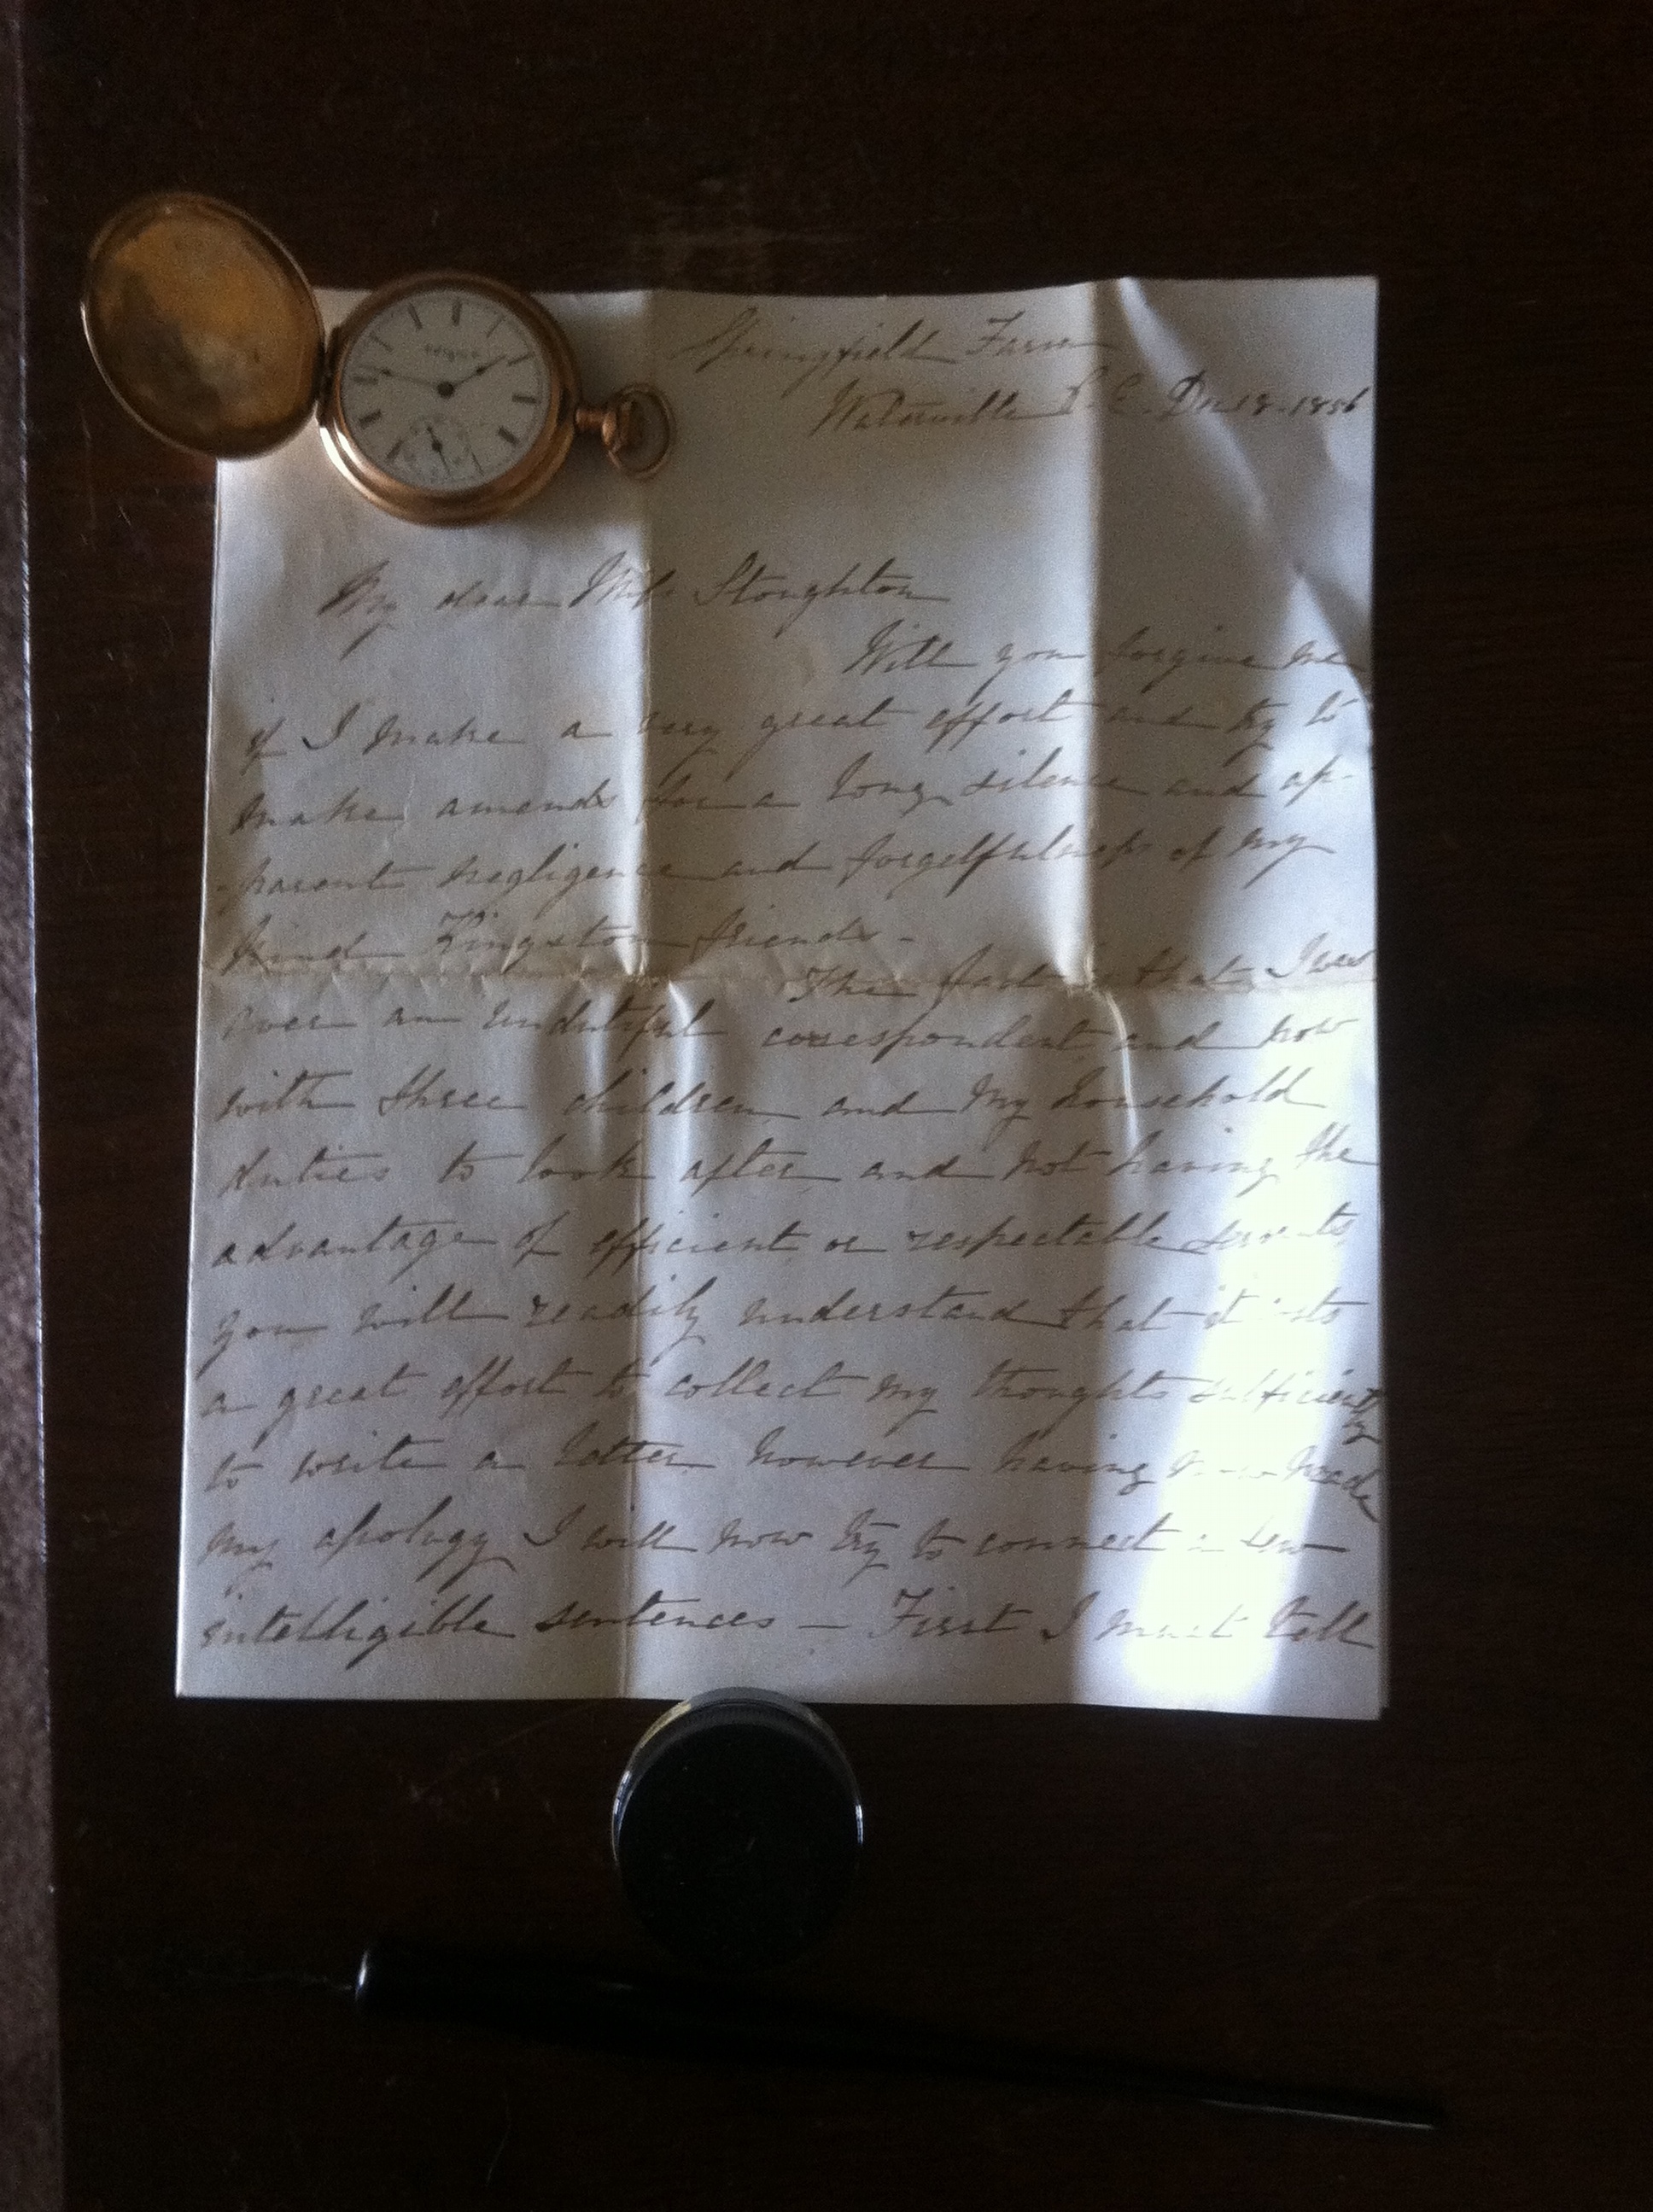 Springfield Farm
Waterville C.E. Dec 18-1856
My dear Miss Stoughton
Will you forgive me
if I make a very great effort and try to
make amends for a long silence and ap-
-parent negligence and forgetfulness of my
kind Kingston friends -
The fact is that I was
ever an undutiful correspondent and now
with three children and my household
duties to look after and not having the
advantage of efficient or respectable servants
you will readily understand that it costs
a great effort to collect my thoughts sufficiently
to write a letter however having now made
my apology I will now try to connect a few
intelligible sentences — First I must tell